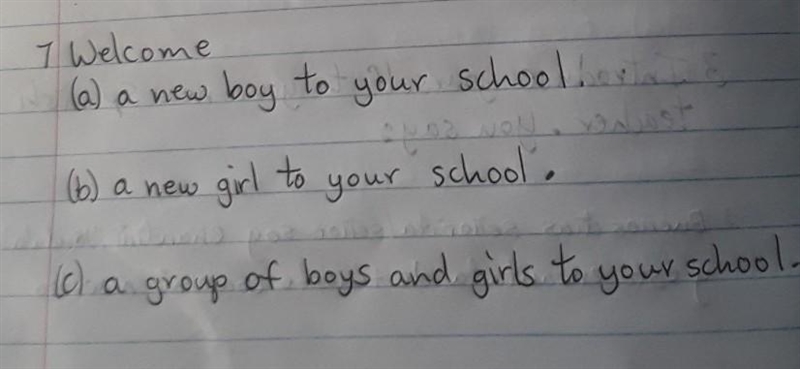 7 Welcome
(a) a new boy to your school.
(b) a new girl to your school.
(c) a group of boys and girls to your school.